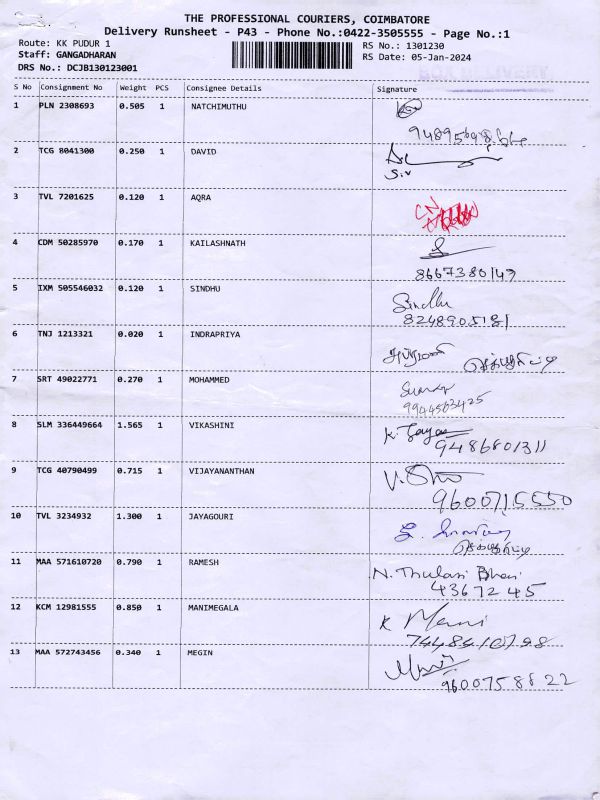 THE PROFESSIONAL COURIERS, COIMBATORE
Delivery Runsheet - P43 - Phone No.:0422-3505555 - Page No.:1
Route: KK PUDUR 1 RS No.: 1301230
Staff: GANGADHARAN RS Date: 05-Jan-2024
DRS No.: DCJB130123001
S No Consignment No Weight PCS Consignee Details Signature
1 PLN 2308693 0.505 1 NATCHIMUTHU
2 TCG 8041300 0.250 1 DAVID
3 TVL 7201625 0.120 1 AQRA
4 CDM 50285970 0.170 1 KAILASHNATH
8667380149
5 IXM 505546032 0.120 1 SINDHU Sindhu
8248905181
6 TNJ 1213321 0.020 1 INDRAPRIYA
7 SRT 49022771 0.270 1 MOHAMMED
9944503425
8 SLM 336449664 1.565 1 VIKASHINI K. Jayaa
9486801311
9 TCG 40790499 0.715 1 VIJAYANANTHAN
9600715550
10 TVL 3234932 1.300 1 JAYAGOURI
11 MAA 571610720 0.790 1 RAMESH N. Thulasi Bhai
4367245
12 KCM 12981555 0.850 1 MANIMEGALA K Mani
7448410798
13 MAA 572743456 0.340 1 MEGIN
9600758822